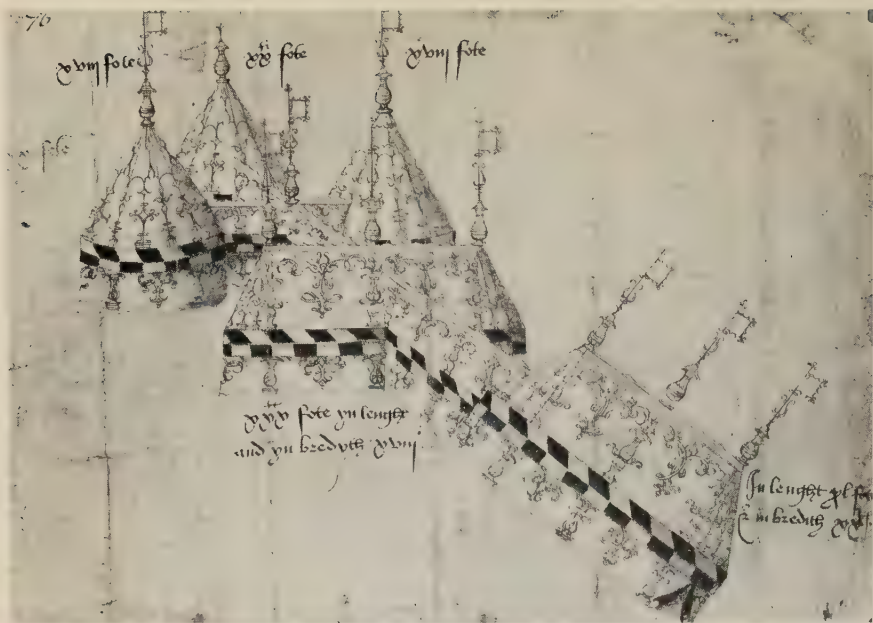 76
xviij fote
xx ti fote
xviij fote
fote
xxx ti fote yn lenght
and yn bredyth xviij
In lenght xl fo
& in bredith xx